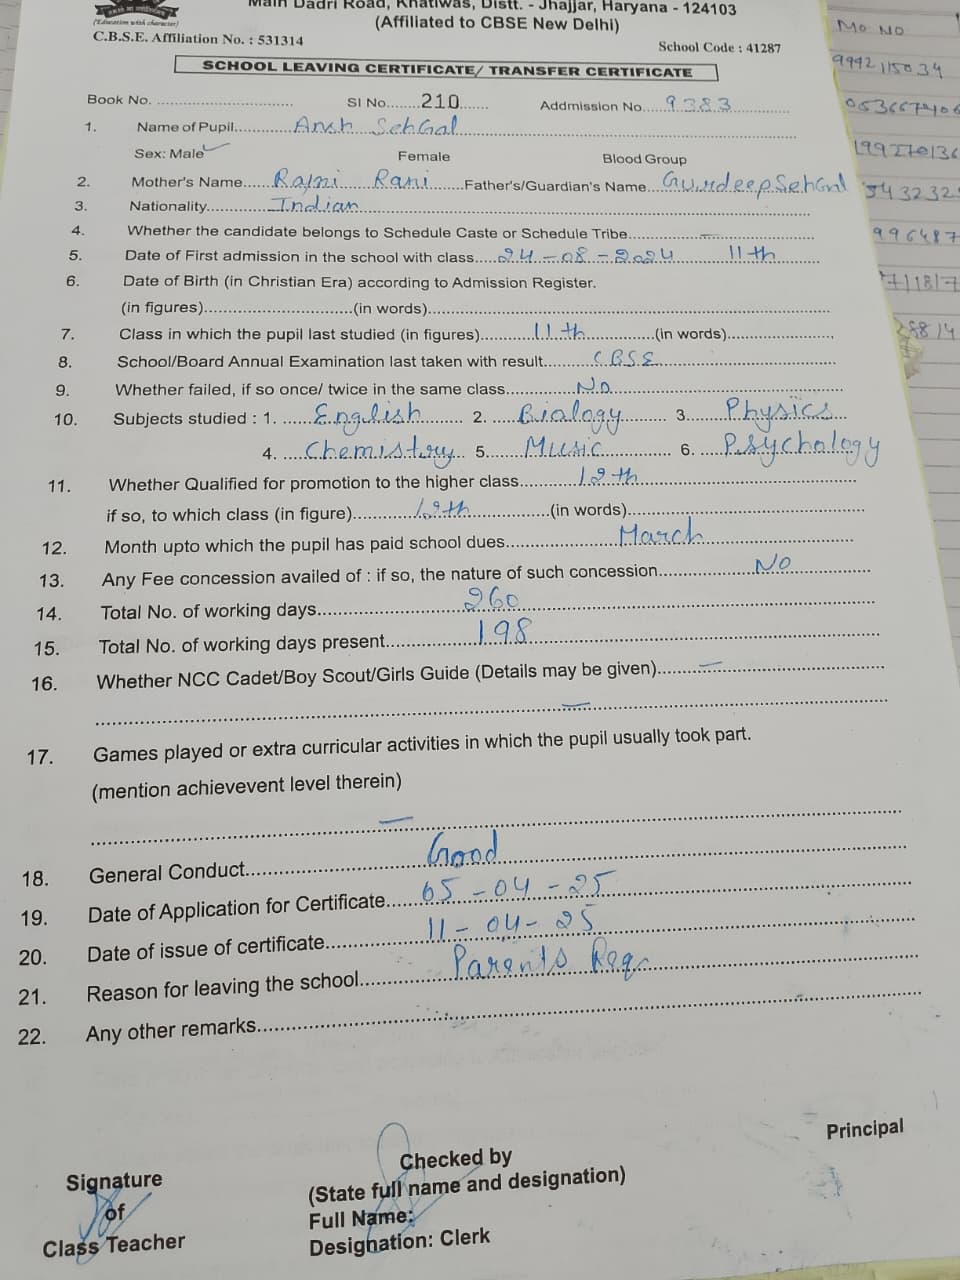 Main Dadri Road, Khatiwas, Distt. - Jhajjar, Haryana - 124103
(Affiliated to CBSE New Delhi)
(Education with character)
C.B.S.E. Affiliation No. : 531314
School Code : 41287
SCHOOL LEAVING CERTIFICATE/ TRANSFER CERTIFICATE
Book No. SI No. 210 Addmission No. 9383
1. Name of Pupil Ansh Sehgal
Sex: Male Female Blood Group
2. Mother's Name Rajni Rani Father's/Guardian's Name Gurdeep Sehgal
3. Nationality Indian
4. Whether the candidate belongs to Schedule Caste or Schedule Tribe —
5. Date of First admission in the school with class 24-08-2024 11th
6. Date of Birth (in Christian Era) according to Admission Register.
(in figures) (in words)
7. Class in which the pupil last studied (in figures) 11th (in words)
8. School/Board Annual Examination last taken with result CBSE
9. Whether failed, if so once/ twice in the same class No
10. Subjects studied : 1. English 2. Biology 3. Physics
4. Chemistry 5. Music 6. Psychology
11. Whether Qualified for promotion to the higher class 12th
if so, to which class (in figure) 12th (in words)
12. Month upto which the pupil has paid school dues March
13. Any Fee concession availed of : if so, the nature of such concession No
14. Total No. of working days 260
15. Total No. of working days present 198
16. Whether NCC Cadet/Boy Scout/Girls Guide (Details may be given) —
—
17. Games played or extra curricular activities in which the pupil usually took part.
(mention achievevent level therein)
—
18. General Conduct Good
19. Date of Application for Certificate 05-04-25
20. Date of issue of certificate 11-04-25
21. Reason for leaving the school Parents Req.
22. Any other remarks
Principal
Signature
of
Class Teacher
Checked by
(State full name and designation)
Full Name:
Designation: Clerk
Mo No
9992115034